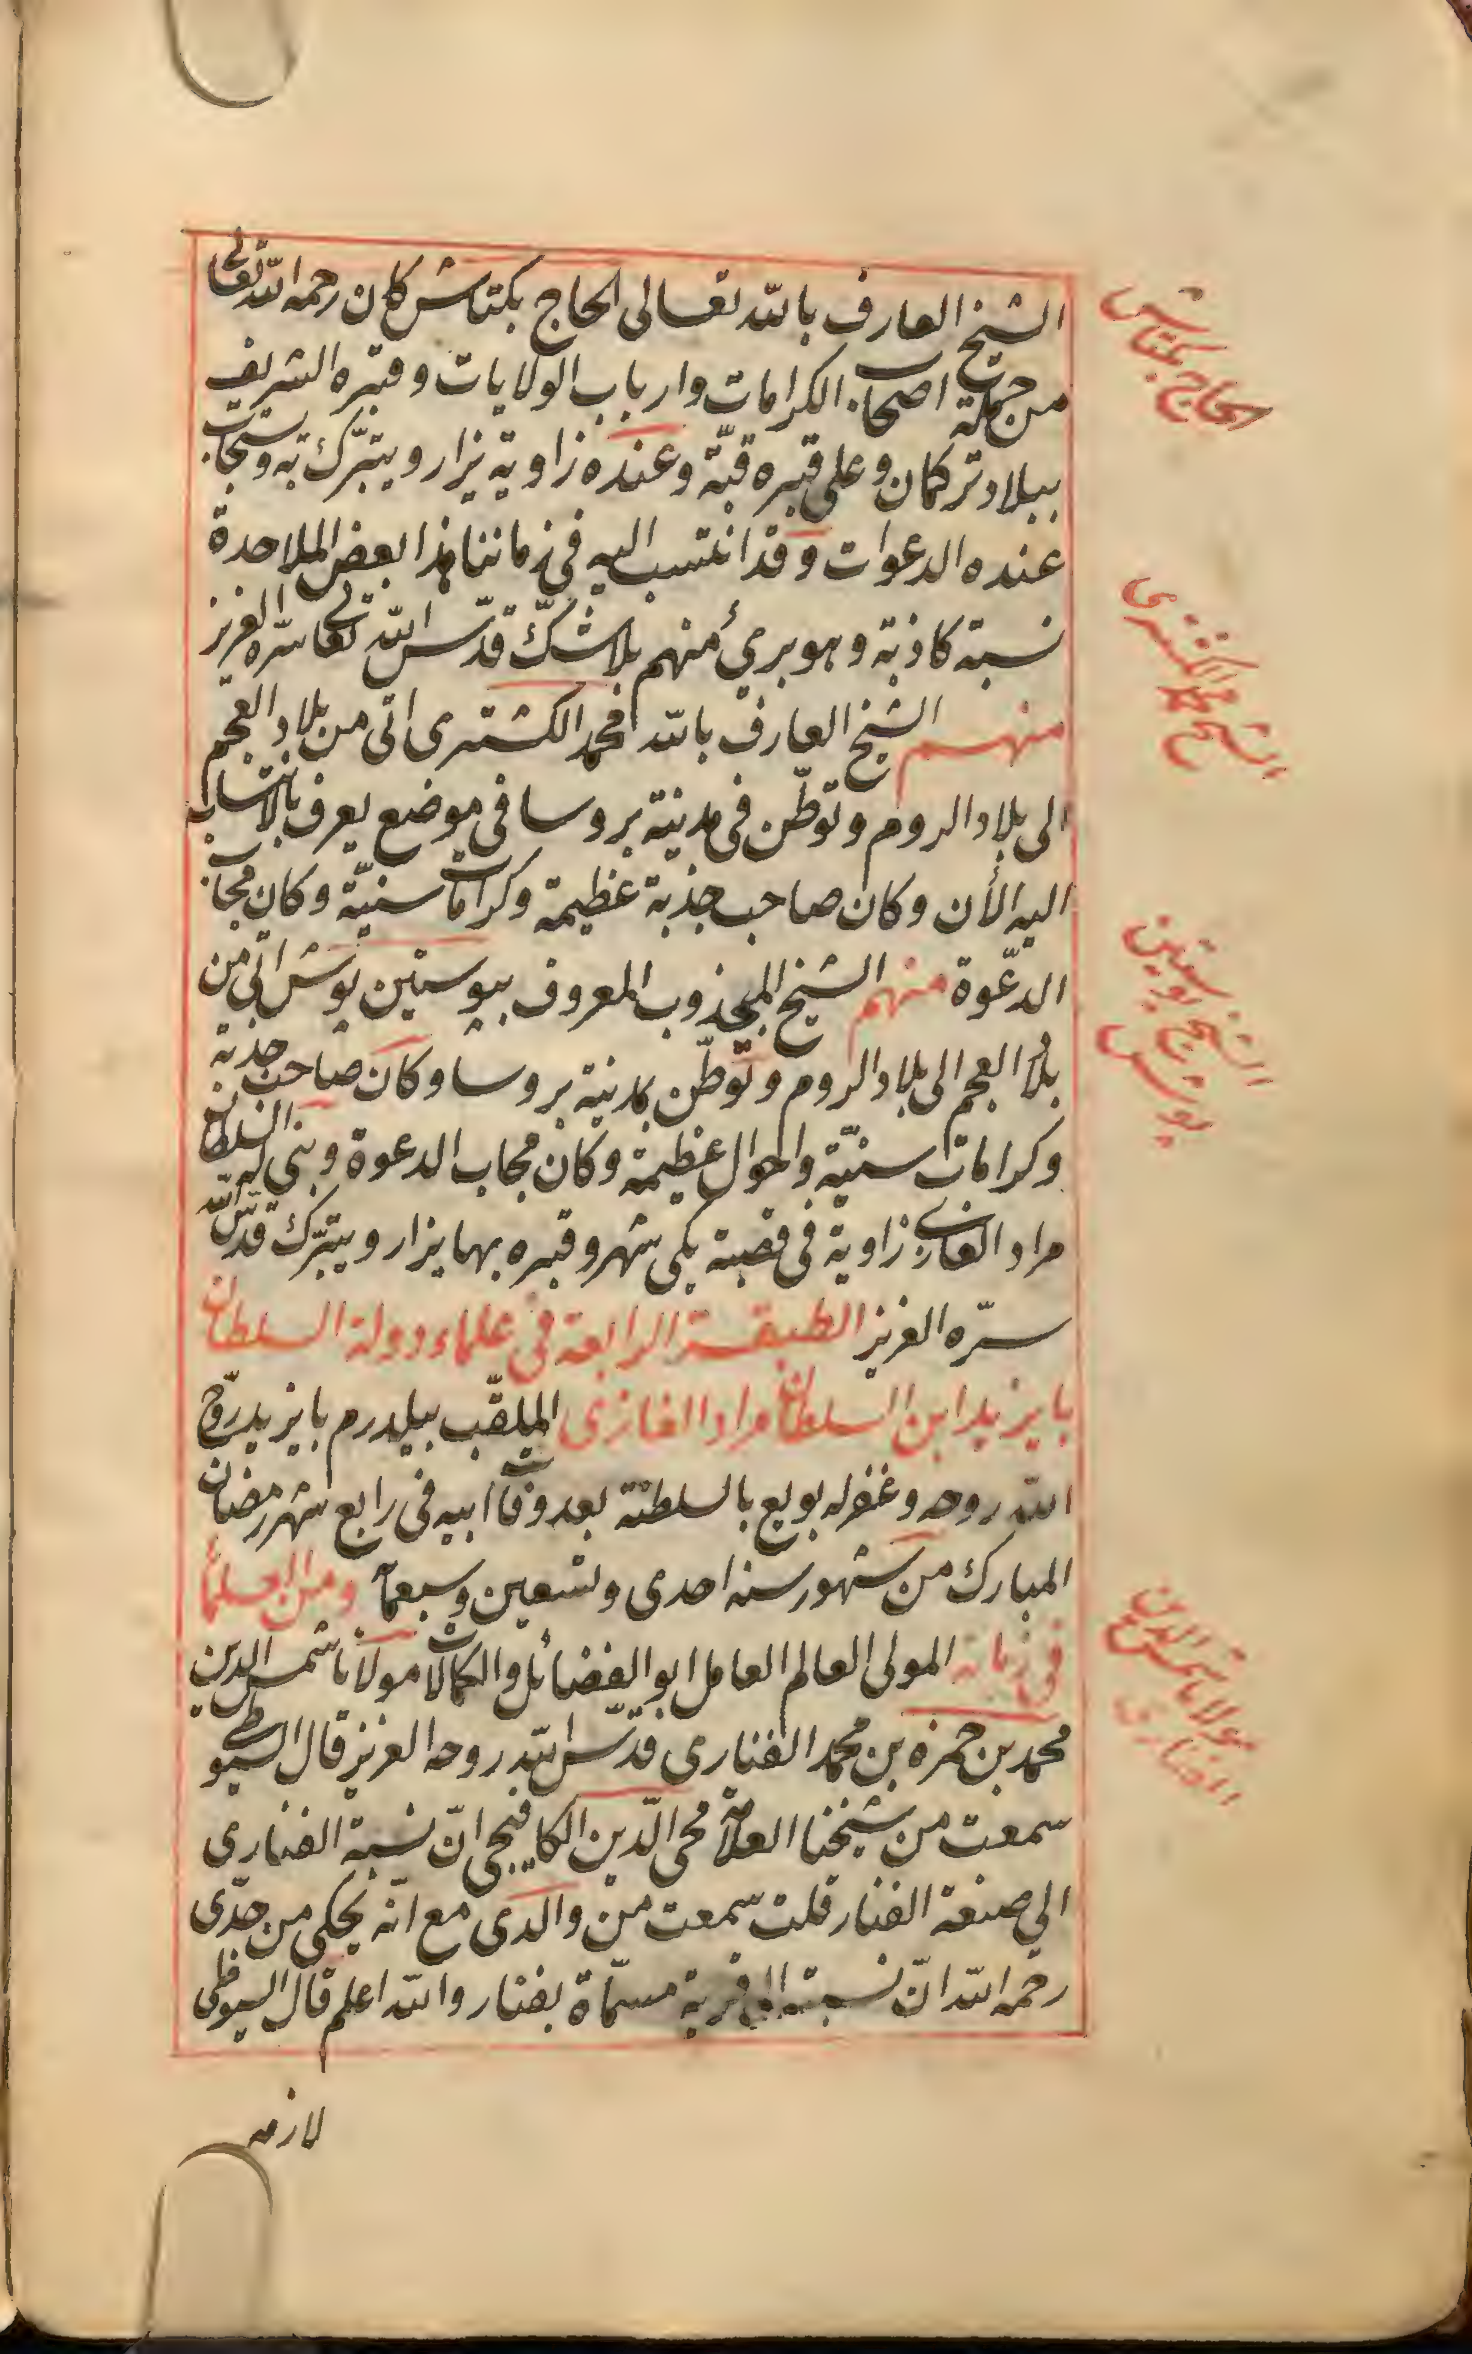 الشيخ العارف بالله تعالى الحاج بكتاش كان رحمه الله تعالى
من جملة اصحاب الكرامات وارباب الولايات وقبره الشريف
ببلاد تركمان وعلى قبره قبّة وعنده زاوية يزار ويتبرّك به وتستجاب
عنده الدعوات وقد انتسب اليه فى زماننا هذا بعض الملاحدة
نسبة كاذبة وهو برئ منهم بلا شكّ قدّس الله تعالى سرّه العزيز
منهم الشيخ العارف بالله محمد الكشترى اتى من بلاد العجم
الى بلاد الروم وتوطّن فى مدينة بروسا فى موضع يعرف بالانتساب
اليه الأن وكان صاحب جذبة عظيمة وكرامات سنيّة وكان مجاب
الدّعوة منهم الشيخ المجذوب المعروف ببوستين پوش اتى من
بلاد العجم الى بلاد الروم وتوطّن بمدينة بروسا وكان صاحب جذبة
وكرامات سنيّة واحوال عظيمة وكان مجاب الدعوة وبنى له السلطان
مراد الغازى زاوية فى قصبة يكى شهر وقبره بها يزار ويتبرّك قدّس الله
سرّه العزيز الطبقة الرابعة فى علماء دولة السلطان
بايزيد ابن السلطان مراد الغازى الملقّب بيلدرم بايزيد روّح
الله روحه وغفر له بويع بالسلطنة بعد وفات ابيه فى رابع شهر رمضان
المبارك من شهور سنه احدى وتسعين وسبعمأ ومن العلمأ
فى زمانه المولى العالم العامل ابو الفضائل والكمالات مولانا شمس الدين
محمد بن حمزه بن محمد الفنارى قدّس الله روحه العزيز قال السيوطى
سمعت من شيخنا العلاّمة محى الدّين الكافيجى انّ نسبة الفنارى
الى صنعة الفنار قلت سمعت من والدى مع انّه يحكى من جدّى
رحمه الله انّ نسبته الى قرية مسمّاة بفنار والله اعلم قال السيوطى
لازمه
الحاج بكتاش
الشيخ محمد الكشترى
الشيخ بوستين
پوش
مولانا شمس الدين
الفنارى